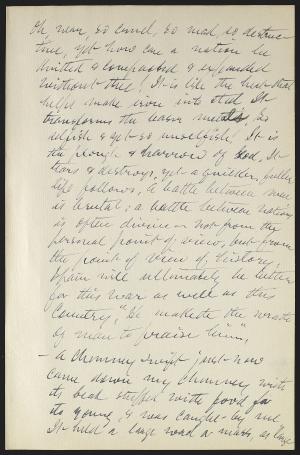 Oh, war, so cruel, so mad, so destruc-
tive, yet how can a nation be
united & compacted & expanded
without thee! It is like the heat that
helps make iron into steel. It
transforms the baser metals, so
selfish & yet so unselfish! It is
the plough & harrow of God. It
tears & destroys, yet a quicker, fuller
life follows. A battle between men
is brutal; a battle between nations
is often divine — not from the
personal point of view, but from
the point of view of history.
Spain will ultimately be better
for this war as well as this
Country. "He maketh the wrath
of man to praise him."
— A chimney swift just now
came down my chimney with
its beak stuffed with food for
its young, & was caught by me
It held a large wad a mass, as large